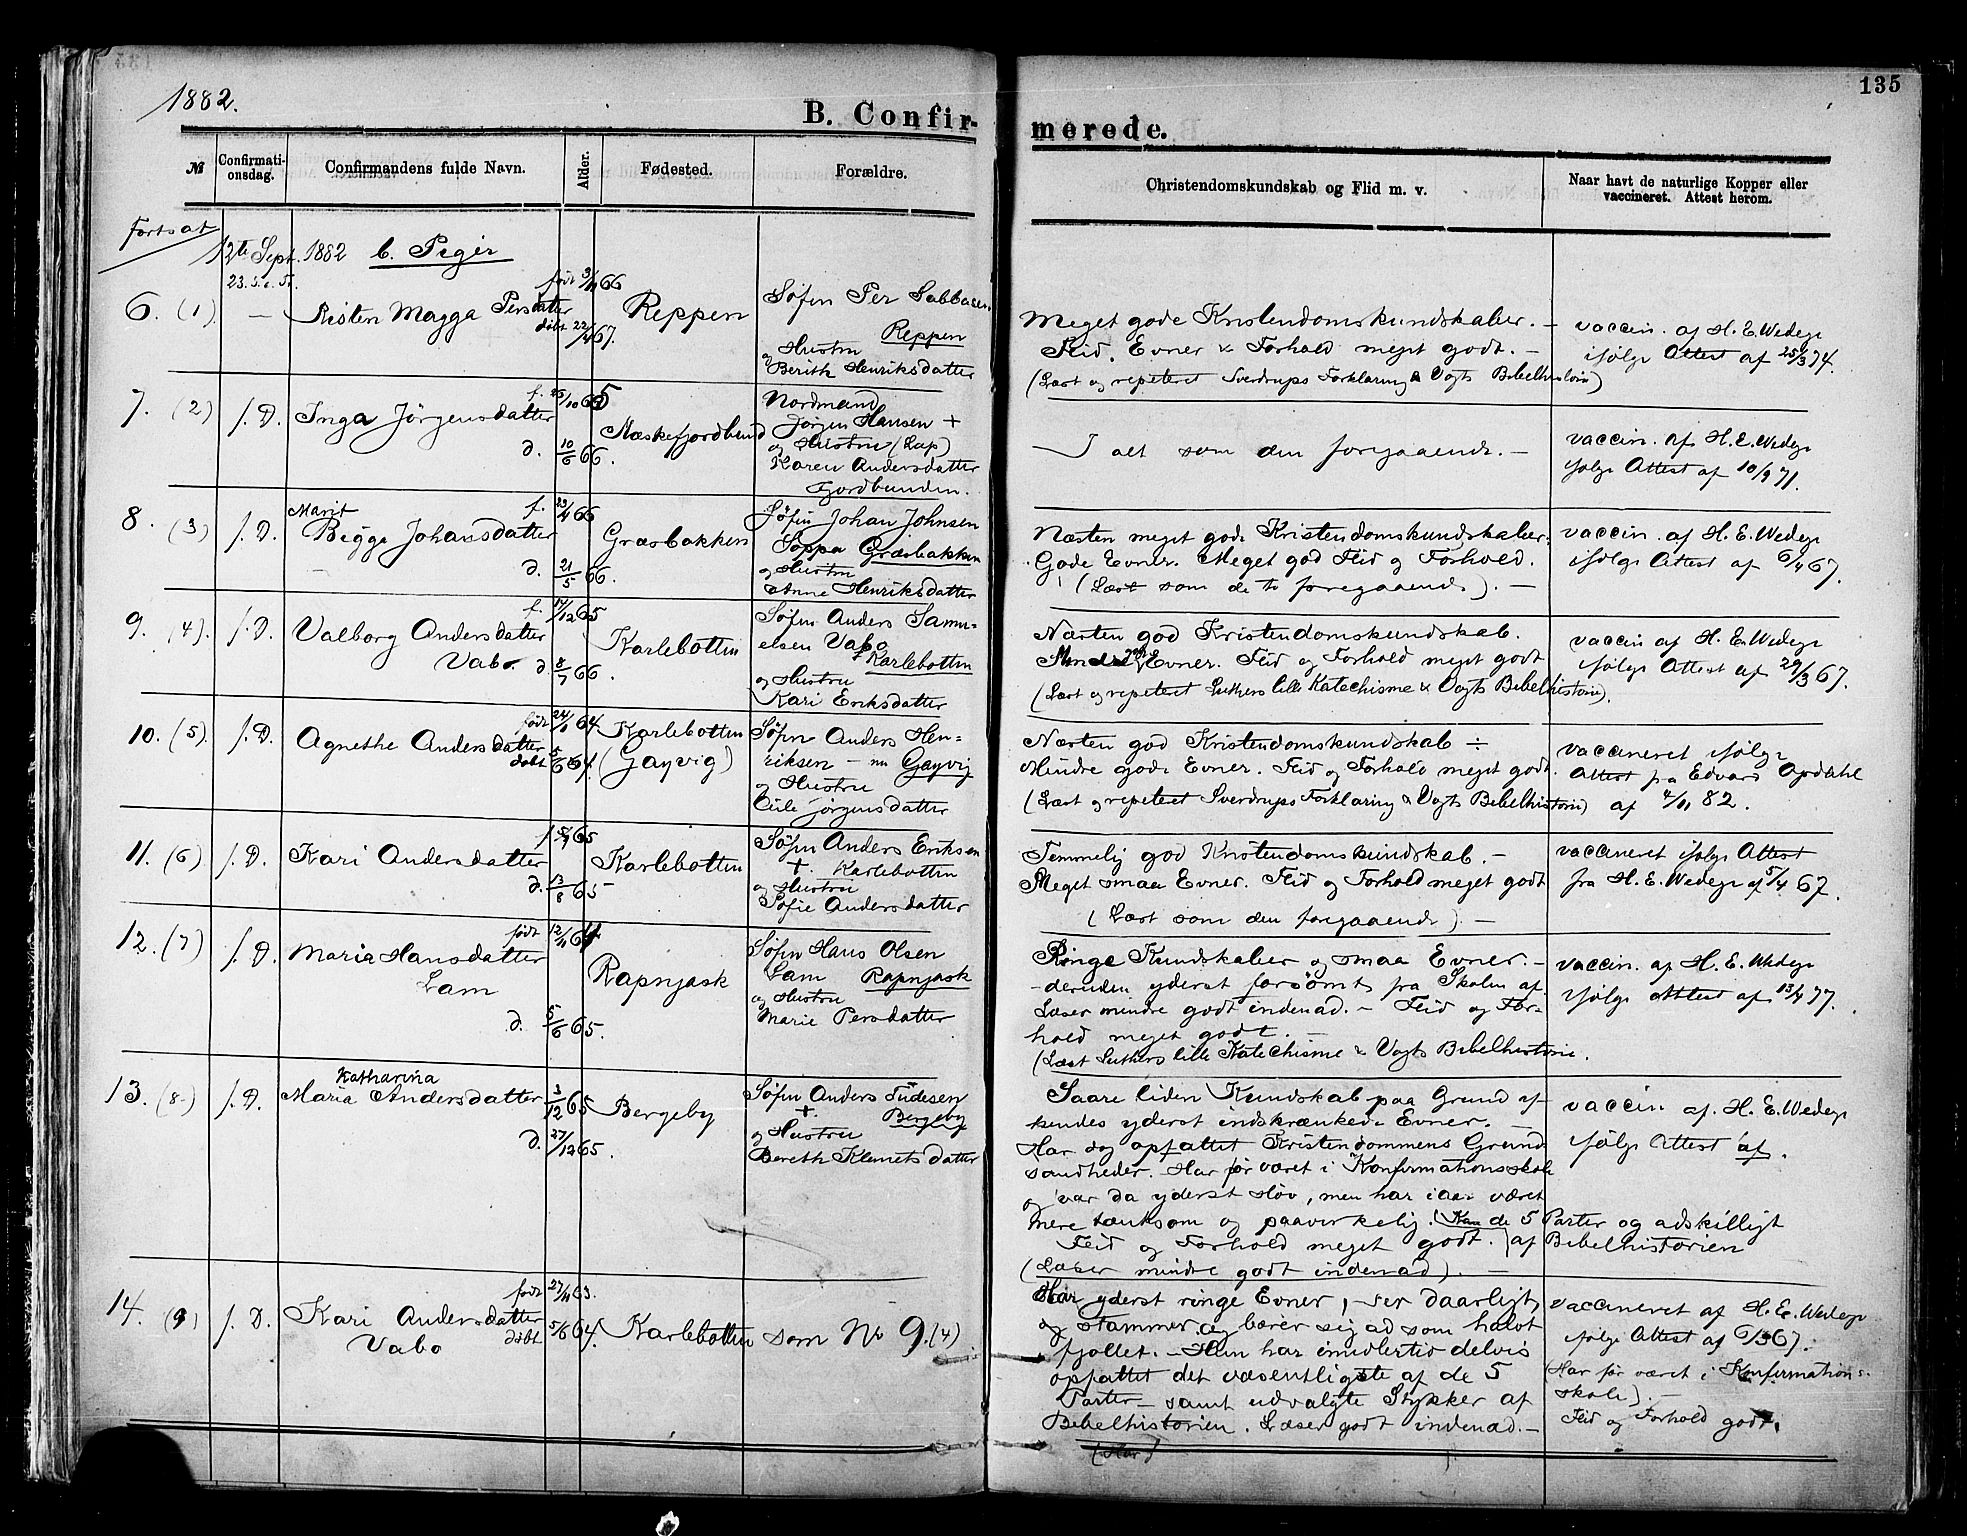 135
1882.
B. Confir-
merede.
№
Confirmati-
onsdag.
Confirmandens fulde Navn.
Alder.
Fødested.
Forældre.
Christendomskundskab og Flid m. v.
Naar havt de naturlige Kopper eller
vaccineret. Attest herom.
Fortsat
12te Sept. 1882 b. Piger
23. S. e. T.
6. (1) — Risten Magga Persdatter
født 3/11 66
døbt 22/4 67.
Reppen
Søfin Per Sabbasen
Reppen
og Hustru
Berith Henriksdatter
Meget gode Kristendomskundskaber. —
Flid, Evner & Forhold meget godt. —
(Læst og repeteret Sverdrups Forklaring & Vogts Bibelhistorie)
vaccin. af H. E. Wedege
ifølge Attest af 25/3 74.
7. (2) f. D. Inga Jørgensdatter
f. 23/10 65
d. 10/6 66.
Næskefjordbund
Nordmand
Jørgen Hansen +
og Hustru (Lap)
Karen Andersdatter
Fjordbunden.
— I alt som den foregaaende. —
vaccin. af H. E. Wedege
ifølge Attest af 10/9 71.
8. (3) f. D. Marit
Bigge Johansdatter
f. 23/4 66
d. 21/5 66.
Græsbakken
Søfin Johan Johnsen
Soppa Græsbakken
og Hustru
Anne Henriksdatter
Næsten meget gode Kristendomskundskaber.
Gode Evner. Meget god Flid og Forhold.
(Læst som de to foregaaende). —
vaccin. af H. E. Wedege
ifølge Attest af 6/4 67.
9. (4). f. D. Valborg Andersdatter
Vabo
f. 17/12 65
d. 8/7 66
Karlebotten
Søfin Anders Samu-
elsen Vabo
Karlebotten
og Hustru
Kari Eriksdatter
Næsten god Kristendomskundskab.
Mindre gode Evner. Flid og Forhold meget godt
(Læst og repeteret Luthers lille Katechisme & Vogts Bibelhistorie).
vaccin af H. E. Wedege
ifølge Attest af 29/3 67.
10. (5). f. D. Agnethe Andersdatter
født 24/1 64.
døbt 5/6 64.
Karlebotten
(Gayvig)
Søfin Anders Hen-
riksen — nu Gayvig
og Hustru
Jørgensdatter
Næsten god Kristendomskundskab ÷
Mindre gode Evner. Flid og Forhold meget godt.
(Læst og repeteret Sverdrups Forklaring & Vogts Bibelhistorie)
vaccineret ifølge
Attest fra Edvard Opdahl
af 4/11 82.
11. (6) f. D. Kari Andersdatter
f. 5/7 65
d. 13/8 65
Karlebotten
Søfin Anders Eriksen
+. Karlebotten
og Hustru
Sofie Andersdatter
Temmelig god Kristendomskundskab. —
Meget smaa Evner. Flid og Forhold meget godt
(Læst som den foregaaende). —
vaccineret ifølge Attest
fra H. E. Wedege af 5/4 67.
12. (7) f. D. Maria Hansdatter
Lam
født 12/11 64
d. 5/6 65.
Rapnjask
Søfin Hans Olsen
Lam Rapnjask
og Hustru
Marie Persdatter
Ringe Kundskaber og smaa Evner. —
— desuden yderst forsømt fra Skolen af.
Læser mindre godt indenad. — Flid og For-
hold meget godt. —
(Læst Luthers lille Katechisme & Vogts Bibelhistorie.
vaccin. af H. E. Wedege
ifølge Attest af 13/4 77.
13. (8.) f. D. Katharina
Maria Andersdatter
3/12 65
d. 27/12 65.
Bergeby
Søfin Anders Tudesen
+. Bergeby
og Hustru
Bereth Klemetsdatter
Saare liden Kundskab paa Grund af
hendes yderst indskrænkede Evner. —
Har dog opfattet Kristendommens Grund
sandheder. Har før været i Konfirmationsskole
og var da yderst sløv, men har iaar været
mere tænksom og paavirkelig. (Kan de 5 Parter og adskilligt
Flid og Forhold meget godt.) af Bibelhistorien
(Læser mindre godt indenad). —
vaccin af. H. E. Wedege
ifølge Attest af.
14. (9) f. D. Kari Andersdatter
Vabo
født 27/11 63.
døbt 5/6 64.
Karlebotten
som No 9. (4)
Har yderst ringe Evner, ser daarligt,
og stammer og bærer sig ad som halvt
fjollet. — Hun har imidlertid delvis
opfattet det væsentligste af de 5
Parter — samt udvalgte Stykker af
Bibelhistorien. Læser godt indenad. —
(Har)
vaccineret af H. E. Wedege
ifølge Attest af 6/3 67.
(Har før været i Konfirmations-
skole). —
Flid og Forhold godt.